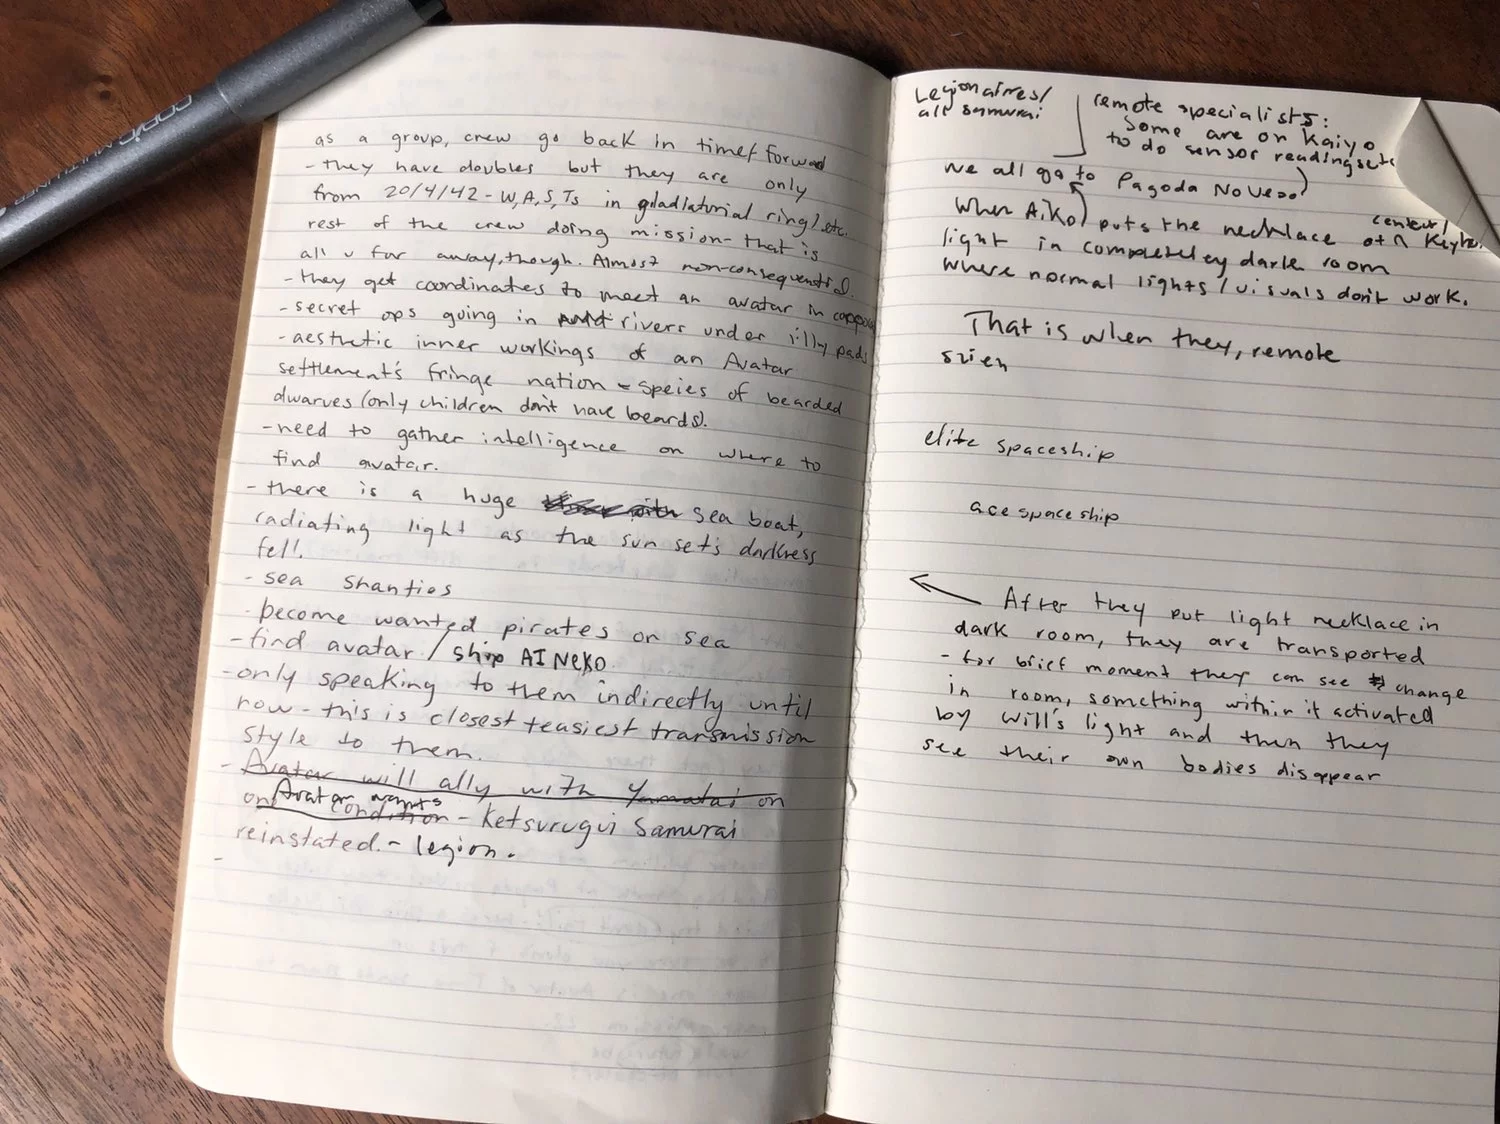 as a group, crew go back in time/forward
- they have doubles but they are only
from 20/4/42 - W, A, S, Ts in gladiatorial ring/etc.
rest of the crew doing mission - that is
all v far away, though. Almost non-consequential.
- they get coordinates to meet an avatar in
- secret ops going in rivers under lilly pads
- aesthetic inner workings of an Avatar
settlement's fringe nation - speies of bearded
dwarves (only children don't have beards).
- need to gather intelligence on where to
find avatar.
- there is a huge sea boat,
radiating light as the sun sets darkness
fell.
- sea shanties
- become wanted pirates on sea
- find avatar / ship AI NEKO.
- only speaking to them indirectly until
now - this is closest teasiest transmission
style to them.
- Avatar will ally with Yamatai on
on condition
Avatar wants
- Ketsurugui Samurai
reinstated. - legion.
-
Legionaires/
all samurai
remote specialists:
Some are on Kaiyo
to do sensor readings etc
we all go to Pagoda No Ve
When Aiko puts the necklace at
center/
light in completely dark room
where normal lights/visuals don't work.
That is when they, remote
elite spaceship
ace spaceship
After they put light necklace in
dark room, they are transported
- for brief moment they can see change
in room, something within it activated
by Will's light and then they
see their own bodies disappear
COPIC MULTILINER